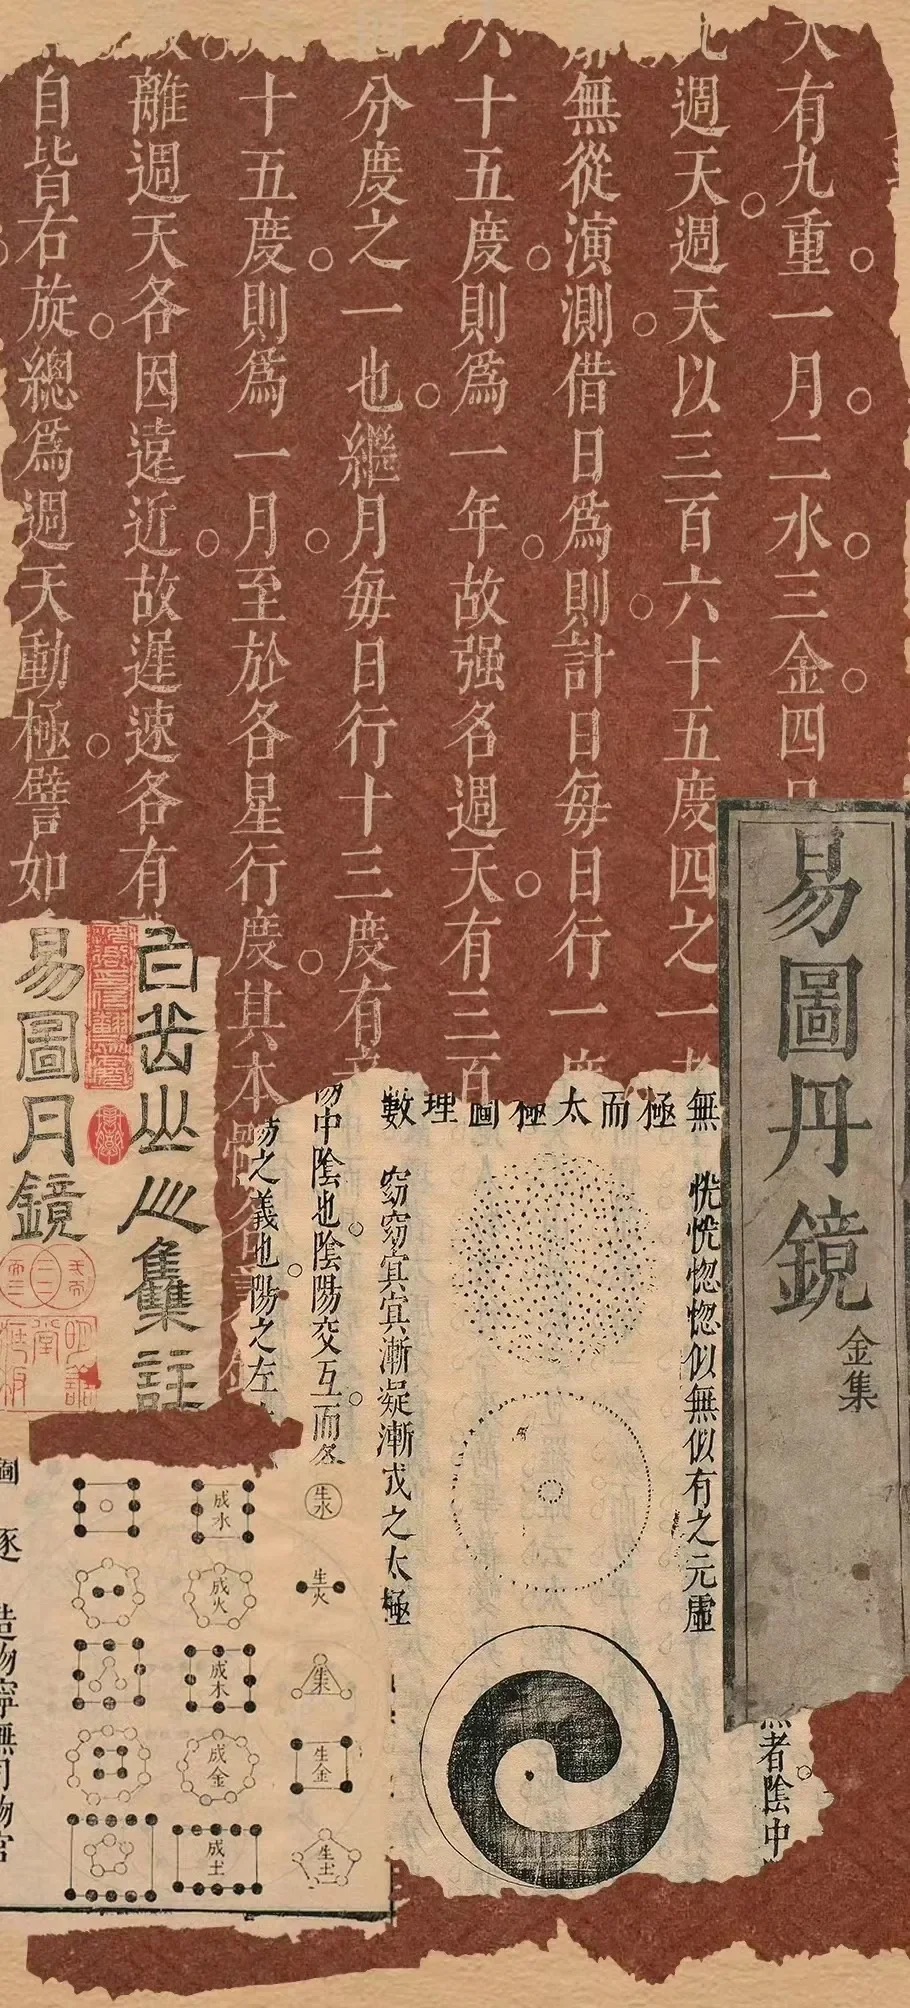 天有九重一月二水三金四日
九週天週天以三百六十五度四之一
無從演測借日爲則計日每日行一度
六十五度則爲一年故强名週天有三百
分度之一也繼月每日行十三度有奇
十五度則爲一月至於各星行度其本
離週天各因遠近故遲速各有
自皆右旋總爲週天動極譬如
易圖丹鏡
金集
無極而太極圖理數
恍恍惚惚似無似有之元虛
窈窈冥冥漸凝漸成之太極
陽中陰也陰陽交互而各
陽之義也陽之左
者陰中
易圖月鏡
集註
成水
生水
成火
生火
成木
生木
成金
生金
成土
生土
圖
逐
造物寧無司物官